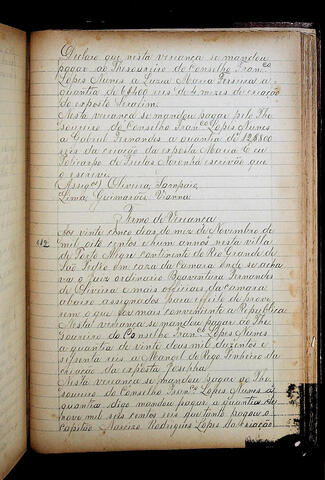 Declaro que nesta veriança se mandou
pagar ao Thesoureiro do Conselho Franco
Lopes Nunes a Luzia Maria Perciza a
quantia de 6$400 reis de 4 mezes de criação
do exposto Serafim.
Nesta veriança se mandou pagar pelo The
soureiro do Conselho Franco Lopes Nunes
a Gabriel Fernandes a quantia de 12$800
réis da criação da exposta Maria E eu
Policarpo de Freitas Noronha escrivão que
o escrevi.
Assignos Oliveira, Sampaio,
Lima, Guimarães, Vianna.
Termo de Veriança
Aos vinte cinco dias do mez de Novembro de
mil oito centos e hum annos nesta villa
de Porto Alegre continente do Rio Grande de
São Pedro em caza da Camara onde se acha
va o juiz ordinario Boaventura Fernandes
de Oliveira e mais officiaes da camara
abaixo assignados para effeito de prove
rem o que fos mais conveniente a Republica
Nesta veriança se mandou pagar ao The
soureiro do Conselho Franco Lopes Nunes
a quantia de vinte dous mil duzentos e
sessenta reis a Manoel do Rego Pinheiro da
criação da exposta Josepha.
Nesta veriança se mandou pagar ao The
soureiro do Conselho Franco Lopes Nunes a
quantia, digo mandou pagar a quantia de
nove mil seis centos reis que tanto pagou o
Capitão Narcizo Rodrigues Lopes da criação